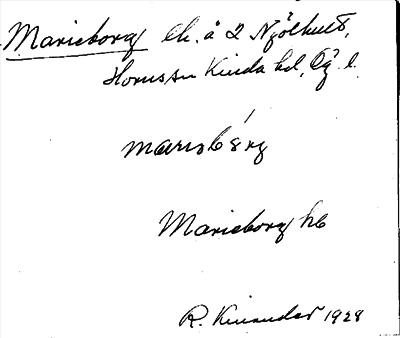 Marieborg lh. å 2 Njölhult,
Horns sn Kinda hd, Ög. l.
marıs bórg
Marieborg hb
R. Kinander 1928